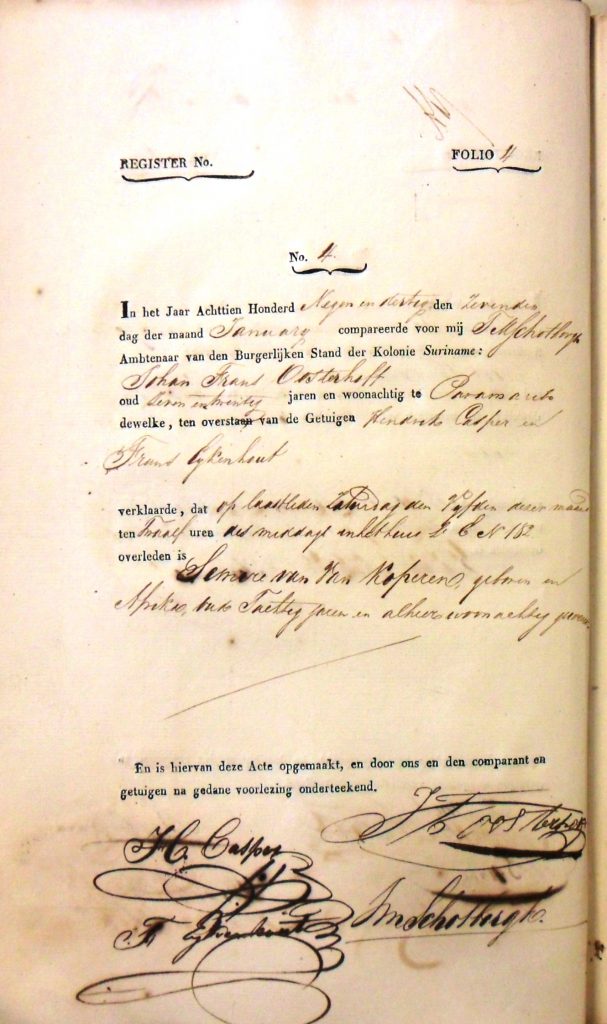 REGISTER No.
FOLIO 4
No. 4.
In het Jaar Achttien Honderd Negen en dertig den Zevenden
dag der maand January compareerde voor mij
Ambtenaar van den Burgerlijken Stand der Kolonie Suriname:
Johan Frans Oosterhoff
oud seven en twintig jaren en woonachtig te Paramaribo
dewelke, ten overstaan van de Getuigen Hendrik Casper en
Frans Eykenhout
verklaarde, dat op laastleden Zaturdag den Vyfden dezer maand
ten Twaalf uren des middags in het huis L E N 182
overleden is
Semire van Van Koperen, geboren in
Afrika, oud Tachtig jaren en alhier woonachtig geweest
En is hiervan deze Acte opgemaakt, en door ons en den comparant en
getuigen na gedane voorlezing onderteekend.
J F Oosterhoff
H. Casper
F Eykenhout
Schotborgh